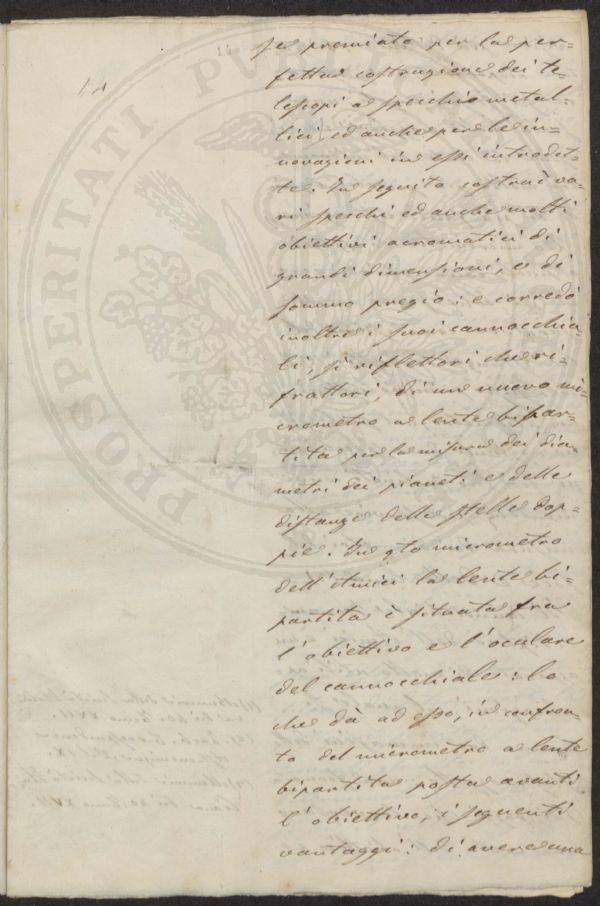 14
16
se premiato per la per=
fetta costruzione dei te=
lescopi a specchio metal=
lici, ed anche per le in=
novazioni in essi introdot=
te. In seguito costruì va=
ri specchi ed anche molti
obiettivi acromatici di
grandi dimensioni, e di
sommo pregio: e corredò
inoltre i suoi cannocchia=
li, sì riflettori che ri=
frattori, di un nuovo mi=
crometro a lente bipar=
tita per la misura dei dia=
metri dei pianeti e delle
distanze delle stelle dop=
pie. In qto micrometro
dell'Amici la lente bi=
partita è situata fra
l'obiettivo e l'oculare
del cannocchiale: lo
che dà ad esso, in confron=
to del micrometro a lente
bipartita posta avanti
l'obiettivo, i seguenti
vantaggi: di avere una
PROSPERITATI PUBL